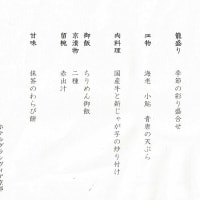 籠盛り　季節の彩り盛合せ
皿物　海老　小鮎　青唐の天ぷら
肉料理　国産牛と新じゃが芋の炒り付け
御飯　ちりめん御飯
京漬物　二種
留椀　赤出汁
甘味　抹茶のわらび餅
ホテルグランヴィア京都